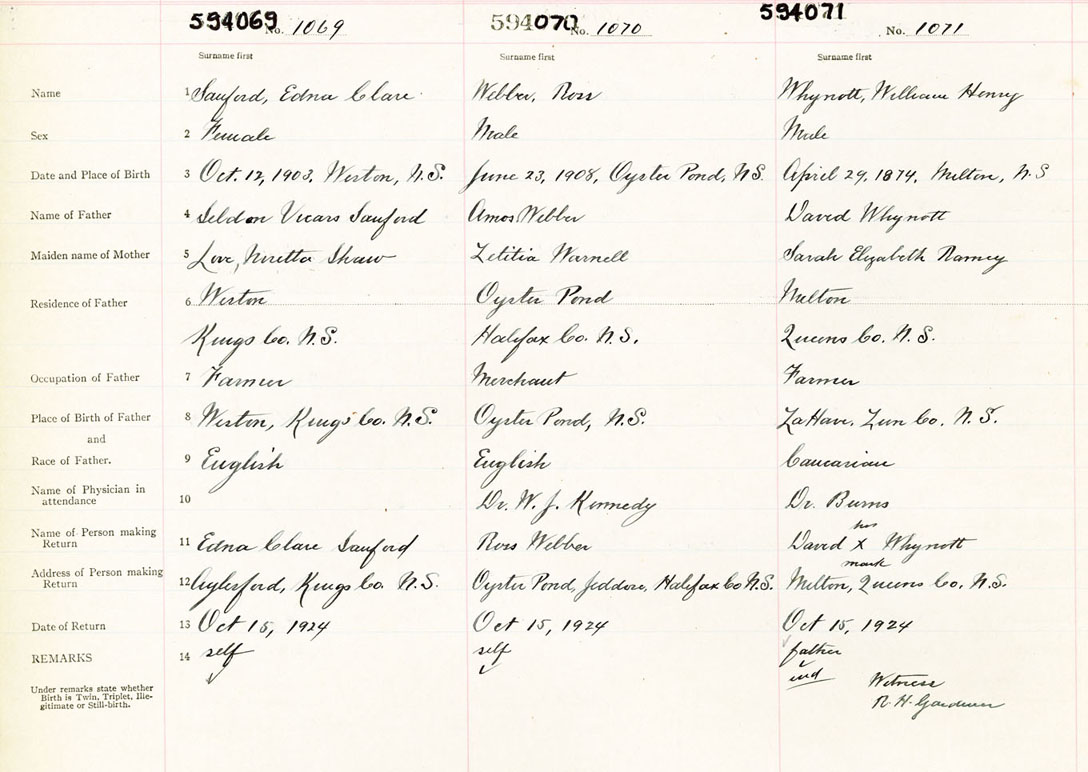 594069 No. 1069 594070 No. 1070 594071 No. 1071
Surname first Surname first Surname first
Name 1 Sanford, Edna Clare Webber, Ross Whynott, William Henry
Sex 2 Female Male Male
Date and Place of Birth 3 Oct. 12, 1903, Weston, N.S. June 23, 1908, Oyster Pond, N.S. April 29, 1874, Milton, N.S
Name of Father 4 Seldon Vicars Sanford Amos Webber David Whynott
Maiden name of Mother 5 Love, Noretta Shaw Letitia Warnell Sarah Elizabeth Ramey
Residence of Father 6 Weston Oyster Pond Milton
Kings Co. N.S. Halifax Co. N.S. Queens Co. N.S.
Occupation of Father 7 Farmer Merchant Farmer
Place of Birth of Father 8 Weston, Kings Co. N.S. Oyster Pond, N.S. LaHave, Lun Co. N.S.
and
Race of Father. 9 English English Caucasian
Name of Physician in attendance 10 Dr. W. J. Kennedy Dr. Burns
his
Name of Person making Return 11 Edna Clare Sanford Ross Webber David X Whynott
mark
Address of Person making Return 12 Aylesford, Kings Co. N.S. Oyster Pond, Jeddore, Halifax Co N.S. Milton, Queens Co. N.S.
Date of Return 13 Oct 15, 1924 Oct 15, 1924 Oct 15, 1924
REMARKS 14 self self father
ind Witness
R. H. Gardner
Under remarks state whether
Birth is Twin, Triplet, Ille-
gitimate or Still-birth.